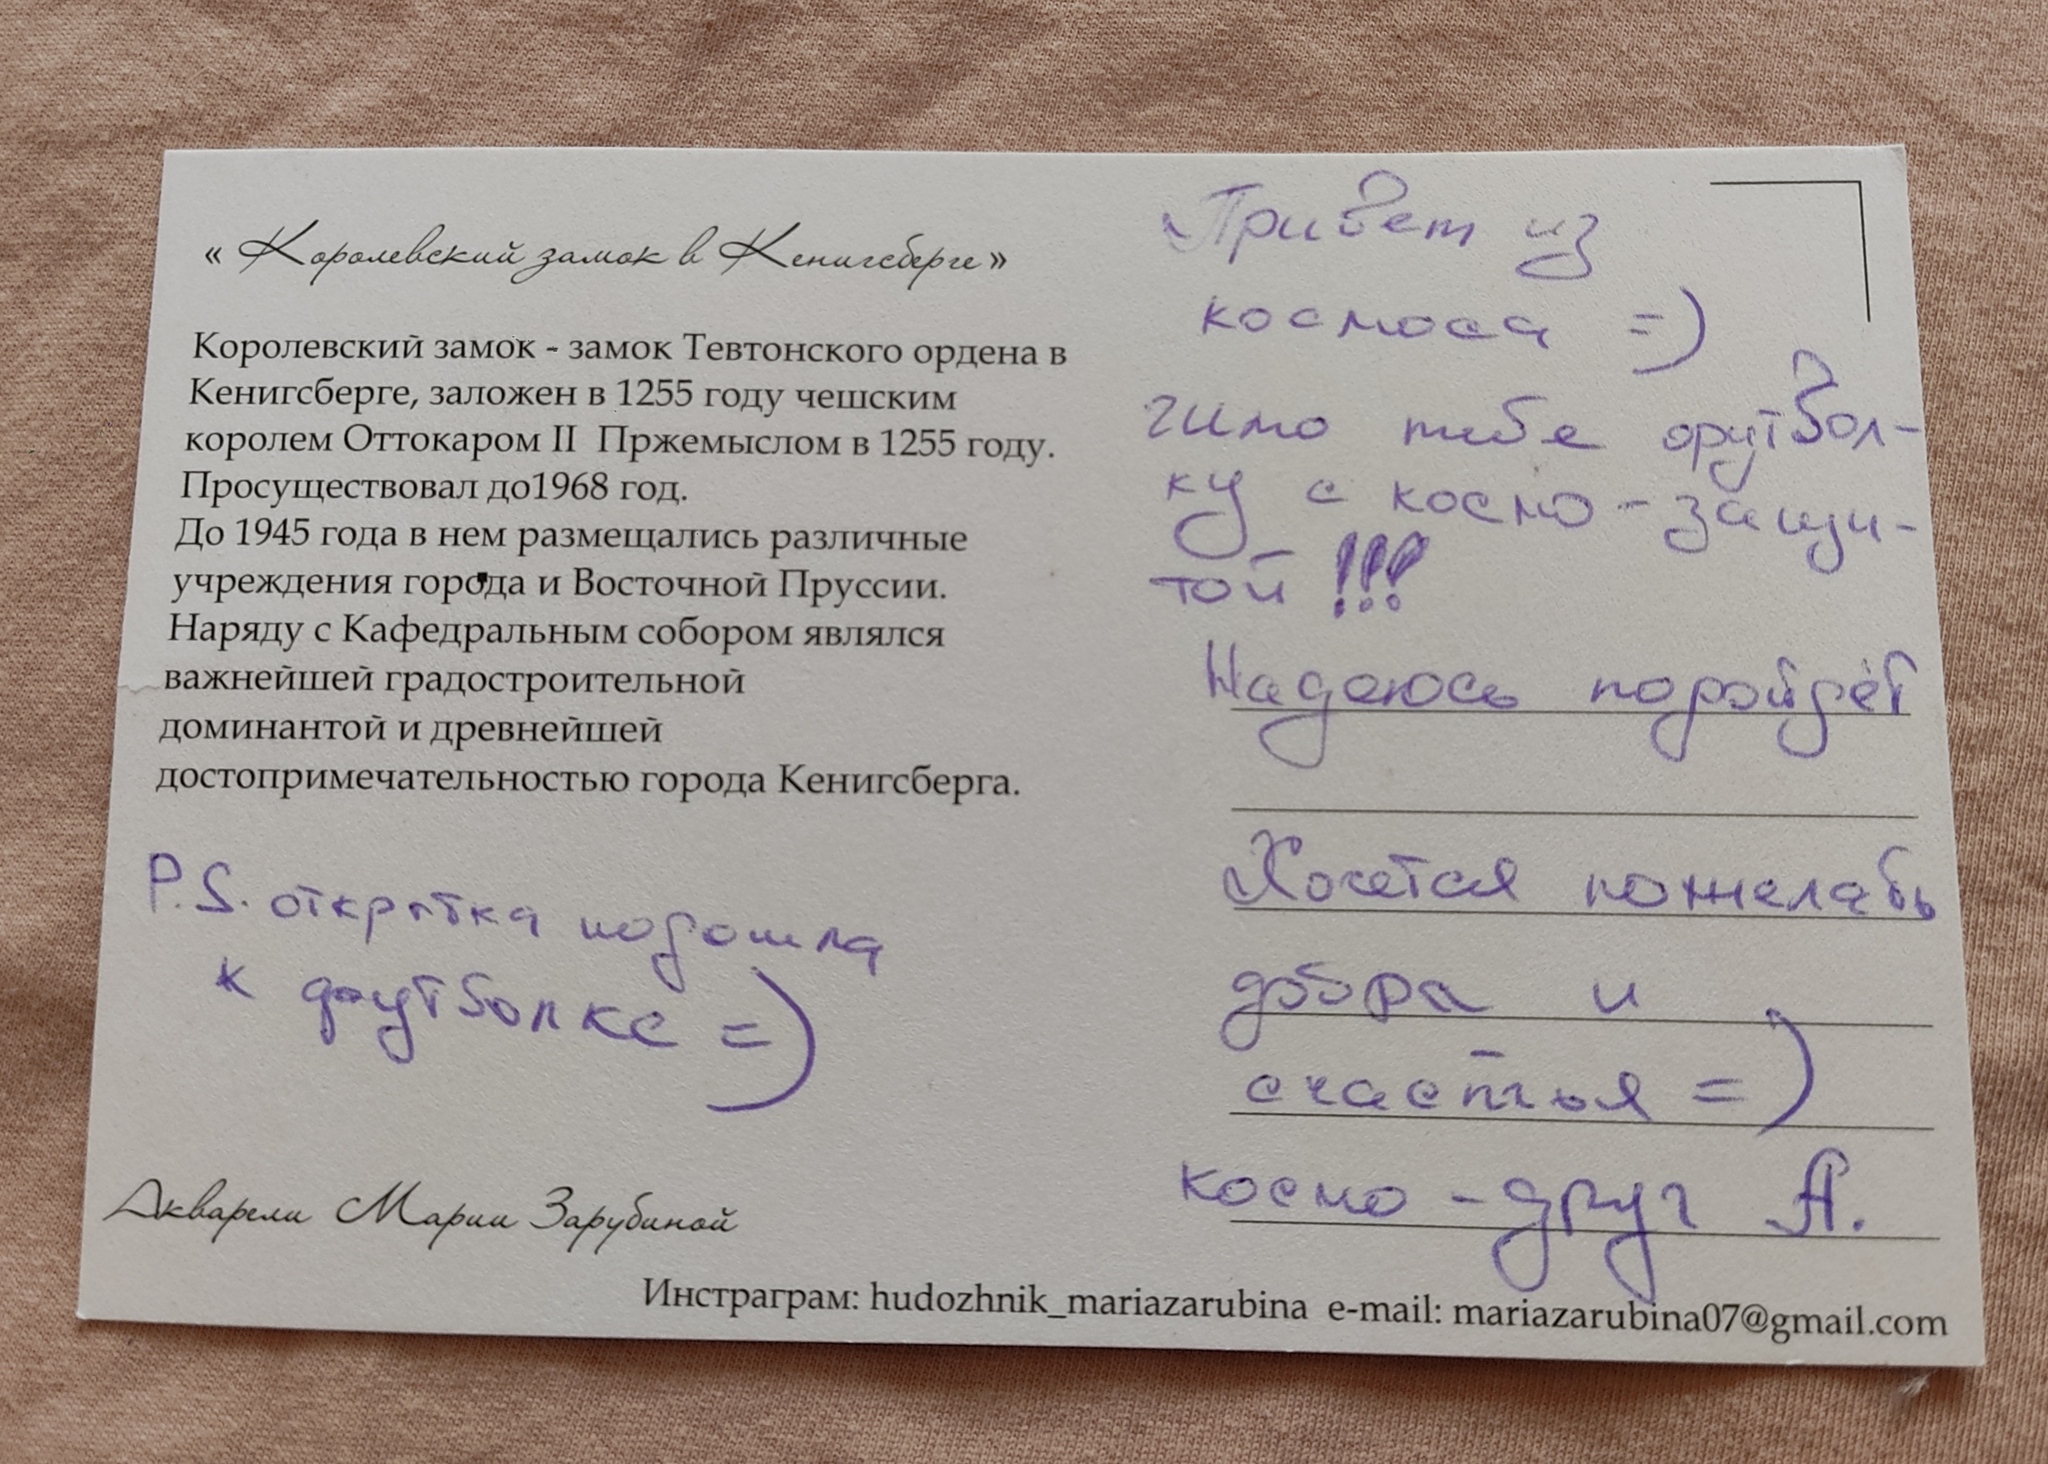 « Королевский замок в Кенигсберге»
Королевский замок - замок Тевтонского ордена в
Кенигсберге, заложен в 1255 году чешским
королем Оттокаром II Пржемыслом в 1255 году.
Просуществовал до1968 год.
До 1945 года в нем размещались различные
учреждения города и Восточной Пруссии.
Наряду с Кафедральным собором являлся
важнейшей градостроительной
доминантой и древнейшей
достопримечательностью города Кенигсберга.
P.S. открытка подошла
к футболке =)
Акварели Марии Зарубиной
Привет из
космоса =)
тебе футбол-
ку с космо-защи-
той !!!
Надеюсь подойдёт
Хочется пожелать
добра и
счастья =)
космо-друг А.
Инстраграм: hudozhnik_mariazarubina e-mail: mariazarubina07@gmail.com